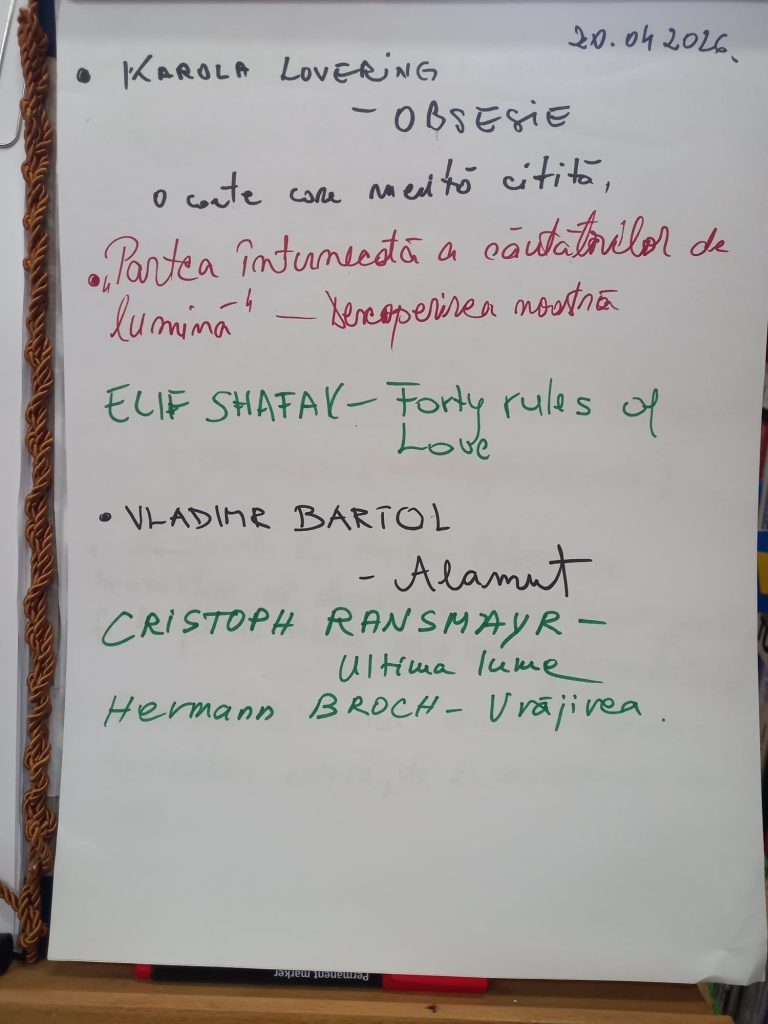 20.04 2026.
• KAROLA LOVERING
– OBSESIE
o carte care merită citită,
• „Partea întunecată a căutătorilor de
lumină" — Descoperirea noastră
ELIF SHAFAK – Forty rules of
Love
• VLADIMR BARTOL
– Alamut
CRISTOPH RANSMAYR –
Ultima lume
Hermann BROCH – Vrăjirea.
Permanent marker